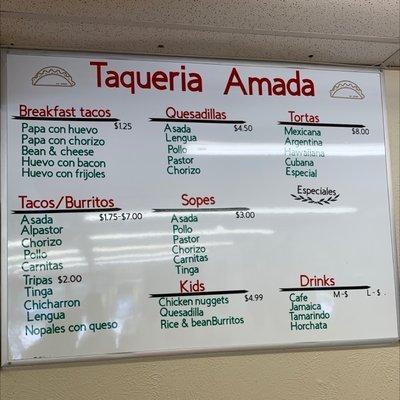 Taqueria Amada
Breakfast tacos
Papa con huevo $1.25
Papa con chorizo
Bean & cheese
Huevo con bacon
Huevo con frijoles
Quesadillas
Asada $4.50
Lengua
Pollo
Pastor
Chorizo
Tortas
Mexicana $8.00
Argentina
Hawaiiana
Cubana
Especial
Especiales
Tacos/Burritos
Asada $1.75-$7.00
Alpastor
Chorizo
Pollo
Carnitas
Tripas $2.00
Tinga
Chicharron
Lengua
Nopales con queso
Sopes
Asada $3.00
Pollo
Pastor
Chorizo
Carnitas
Tinga
Kids
Chicken nuggets $4.99
Quesadilla
Rice & beanBurritos
Drinks
Cafe M-$ L-$
Jamaica
Tamarindo
Horchata